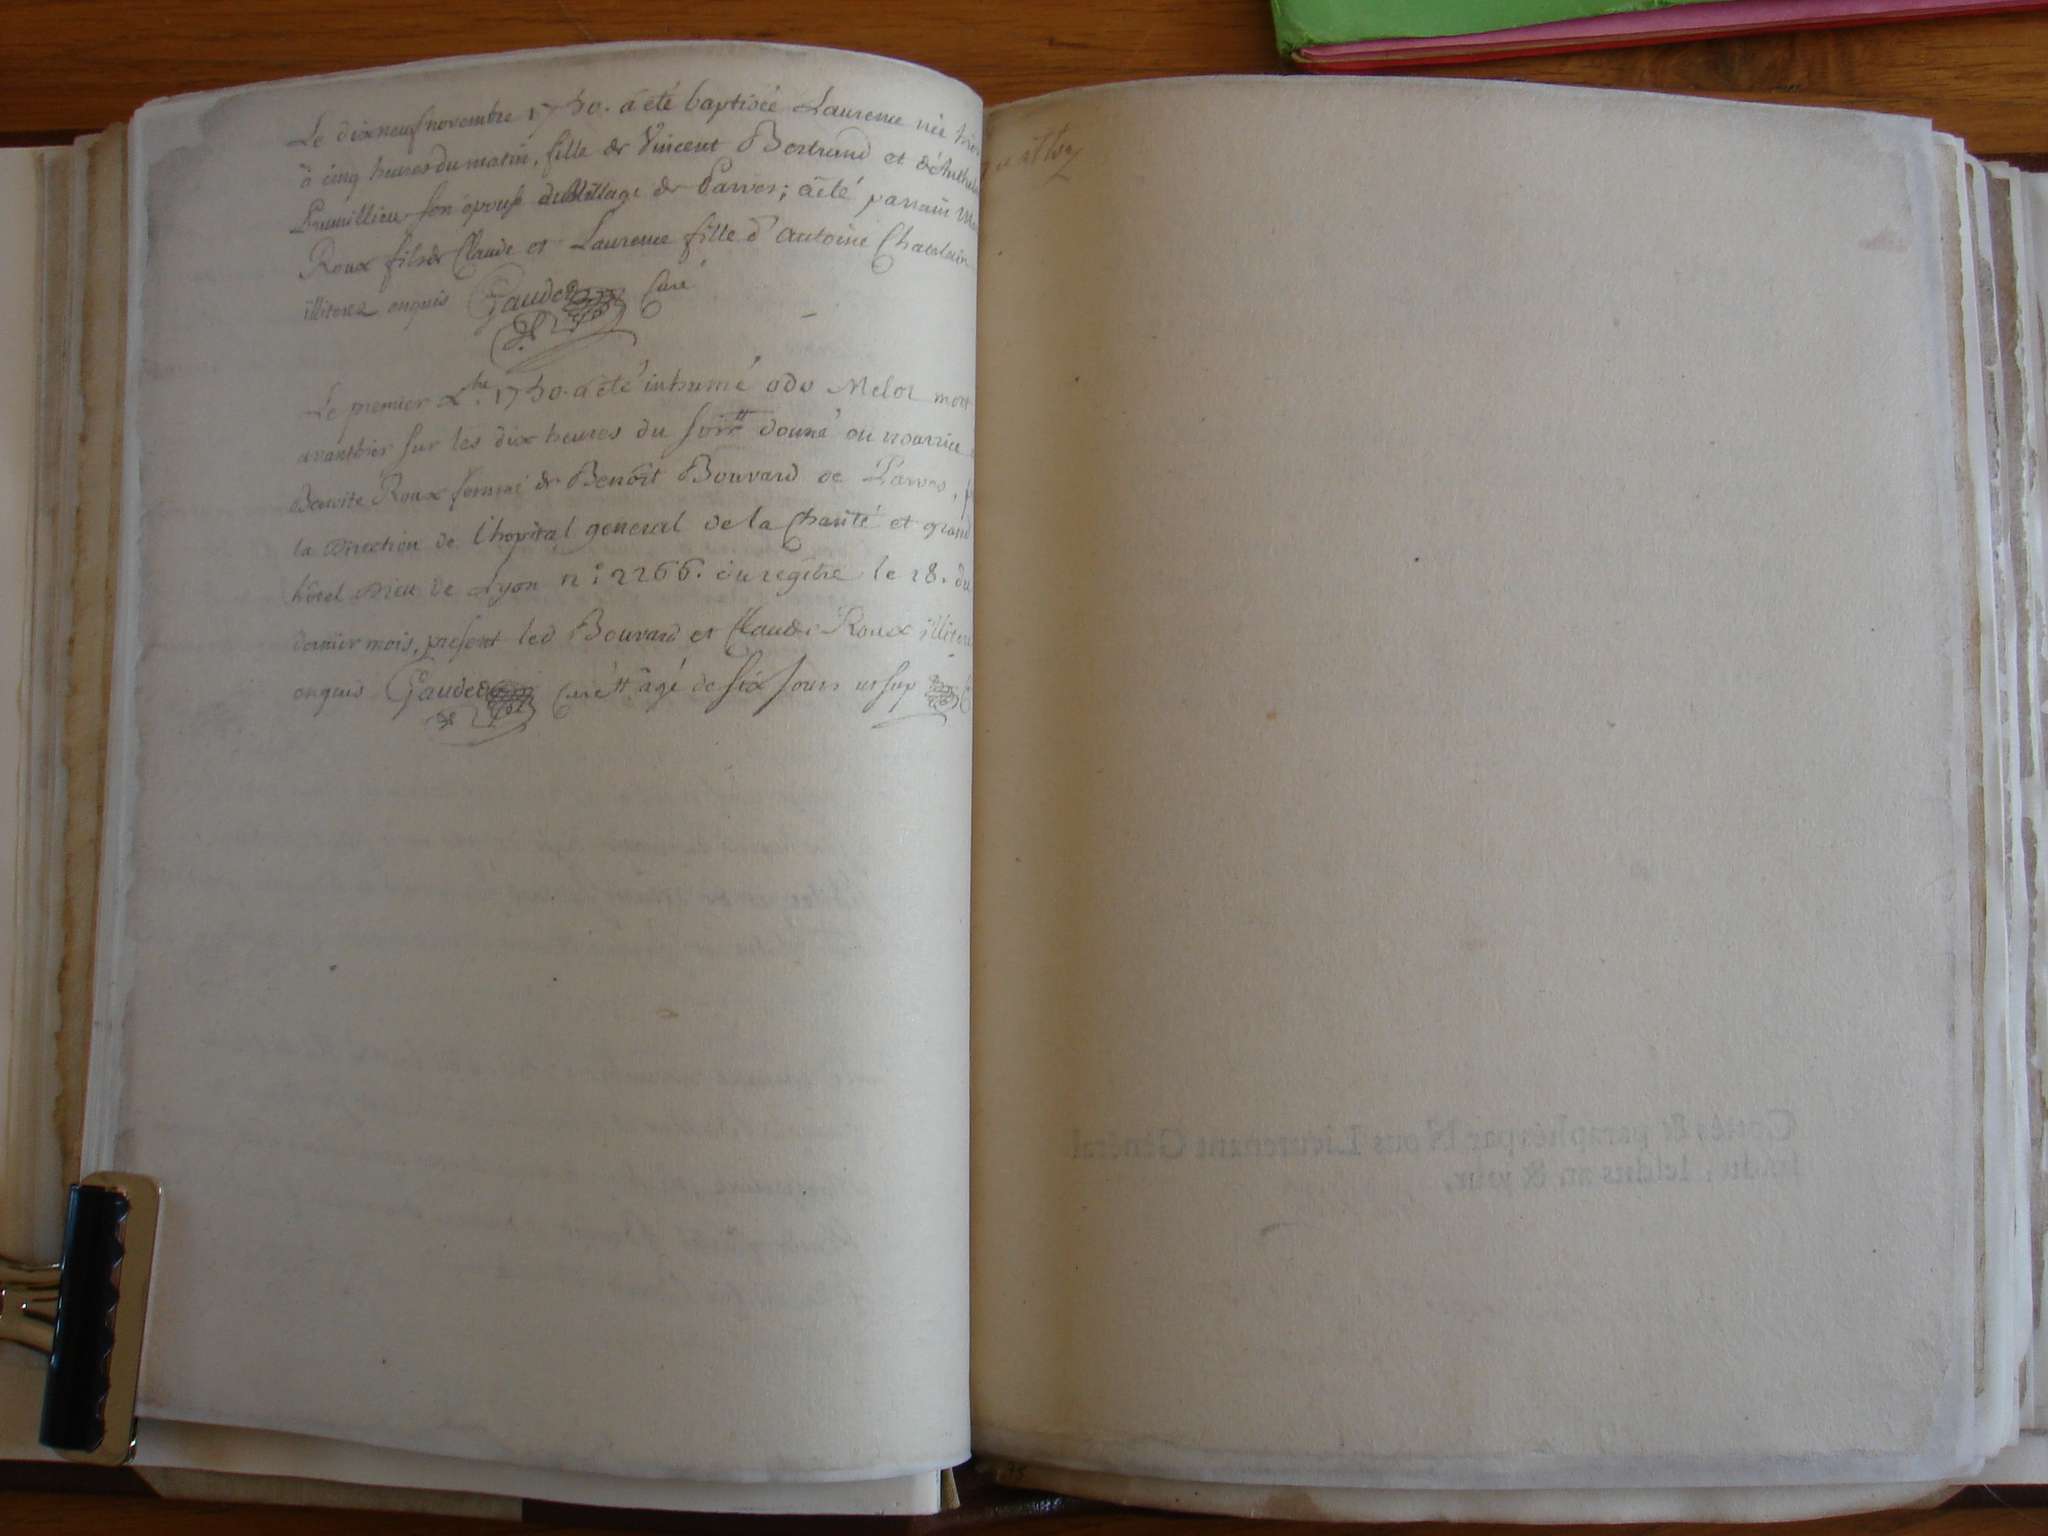 Le dixneuf novembre 1750. a été baptisée Laurence née hier
à cinq heures du matin, fille de Vincent Bertrand et d'Anthel
son épouse du Village de Parves; a été parrain
Roux fils de Claude et Laurence fille d'Antoine Chatelain
illiterez enquis Gaudet Curé
Le premier Xbre. 1750. a été inhumé odo Melor mort
avanthier sur les dix heures du soir donné en nourrice
Benoite Roux femme de Benoît Bouvard de Parves,
la direction de l'hopital general de la Charité et grand
hôtel Dieu de Lyon n°: 2266. enregitré le 28. du
dernier mois, présent led Bouvard et Claude Roux illitere
enquis Gaudet Curé # agé de six jours ut sup
Cottés & paraphés par Nous Lieutenant Général
susdit, lesdits an & jour,